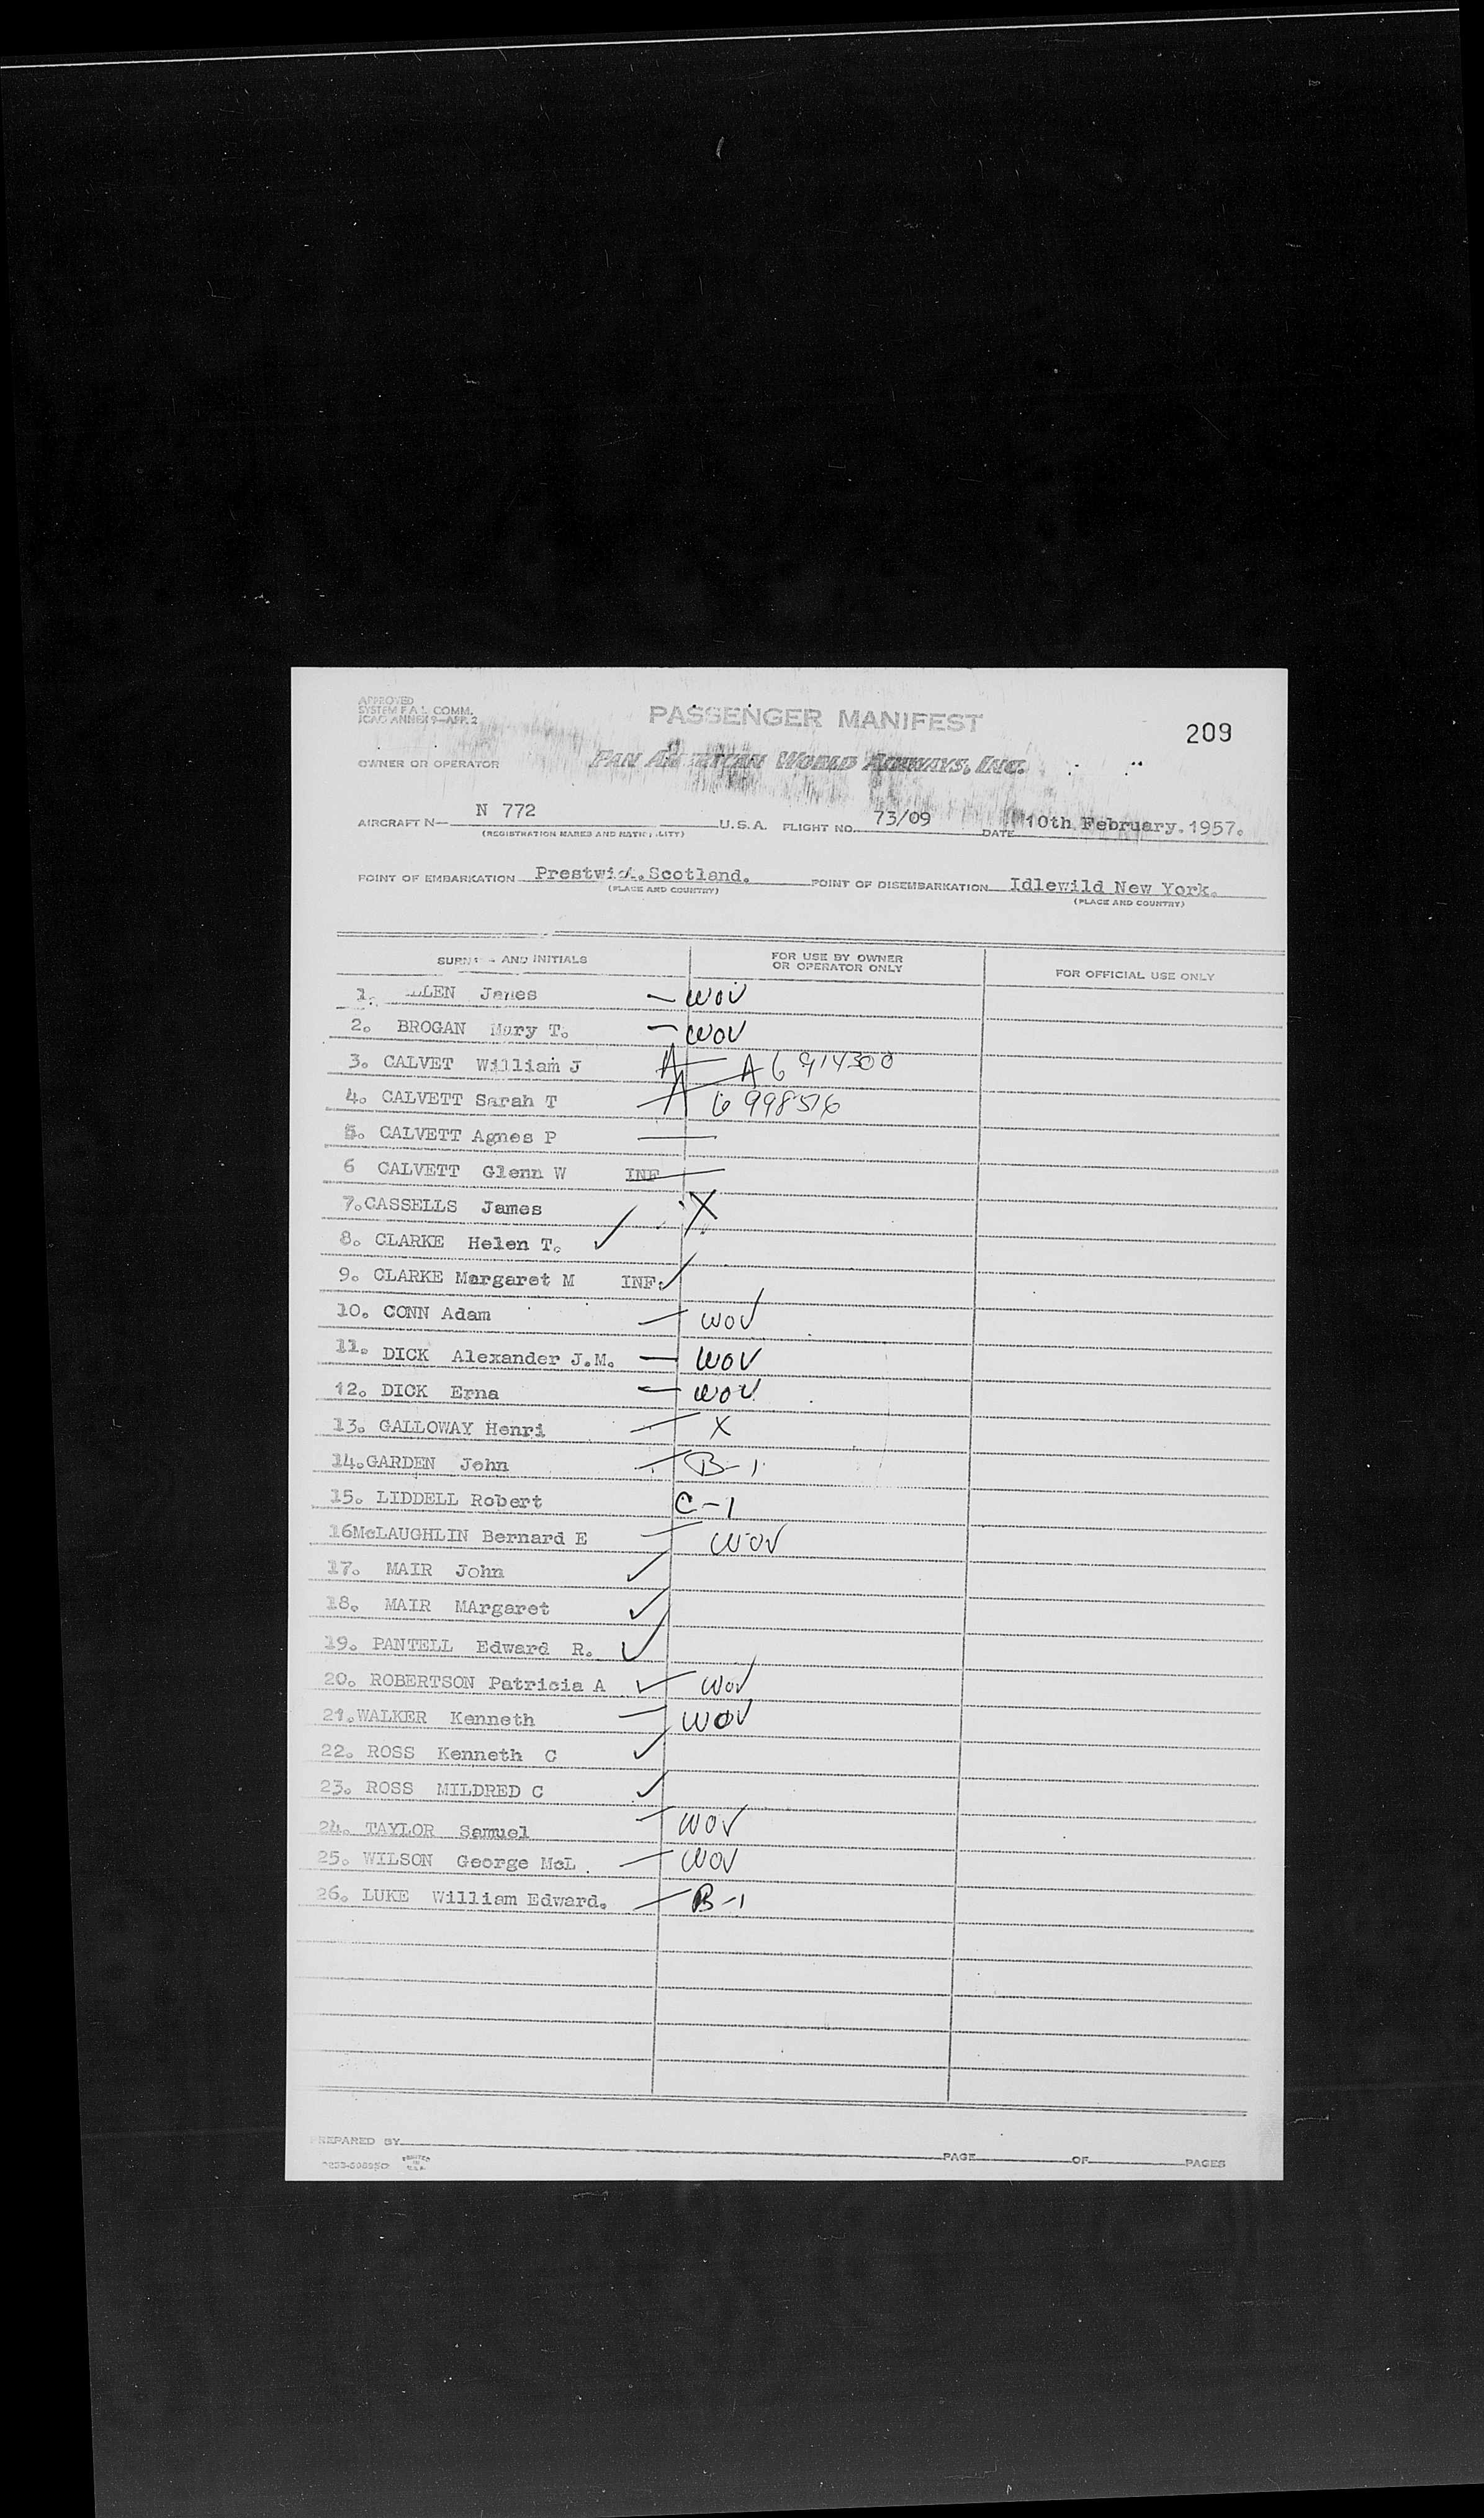 APPROVED
SYSTEM F.A.L. COMM.
ICAO ANNEX 9—APP. 2
PASSENGER MANIFEST
209
OWNER OR OPERATOR PAN AMERICAN WORLD AIRWAYS, INC.
AIRCRAFT N— N 772 U.S.A. FLIGHT NO. 73/09 DATE 10th February. 1957.
(REGISTRATION MARKS AND NATIONALITY)
POINT OF EMBARKATION Prestwick.Scotland. POINT OF DISEMBARKATION Idlewild New York.
(PLACE AND COUNTRY) (PLACE AND COUNTRY)
SURNAME AND INITIALS FOR USE BY OWNER OR OPERATOR ONLY FOR OFFICIAL USE ONLY
1. James — WOV
2. BROGAN Mary T. — WOV
3. CALVET William J A — A6 914300
4. CALVETT Sarah T A 6 998516
5. CALVETT Agnes P —
6 CALVETT Glenn W INF —
7.CASSELLS James X
8. CLARKE Helen T. ✓
9. CLARKE Margaret M INF. ✓
10. CONN Adam — WOV
11. DICK Alexander J.M. — WOV
12. DICK Erna — WOV
13. GALLOWAY Henri — X
14.GARDEN John — B-1
15. LIDDELL Robert C-1
16McLAUGHLIN Bernard E — WOV
17. MAIR John ✓
18. MAIR MArgaret ✓
19. PANTELL Edward R. ✓
20. ROBERTSON Patricia A ✓ WOV
21.WALKER Kenneth — WOV
22. ROSS Kenneth C ✓
23. ROSS MILDRED C ✓
24. TAYLOR Samuel — WOV
25. WILSON George McL . — WOV
26. LUKE William Edward. — B-1
PREPARED BY PAGE OF PAGES
PRINTED IN U.S.A.